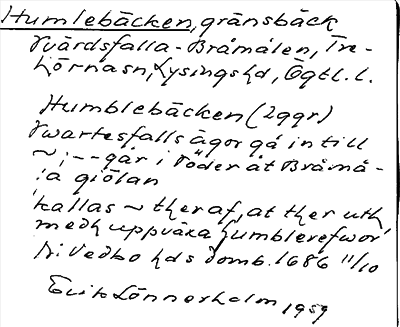 Humlebäcken, gränsbäck
Svärdsfalla - Bråmålen, Tre-
hörnasn, Lysingshd, Ögtl. l.
Humblebäcken (2ggr)
Swartesfalls ägor gå in till
~; -- går i Söder åt Bråmå-
la giölan
kallas ~ theraf, at ther uth,
medh uppväxa humblerefwor
N: Vedbo hds domb. 1686 11/10
Erik Lönnerholm 1959